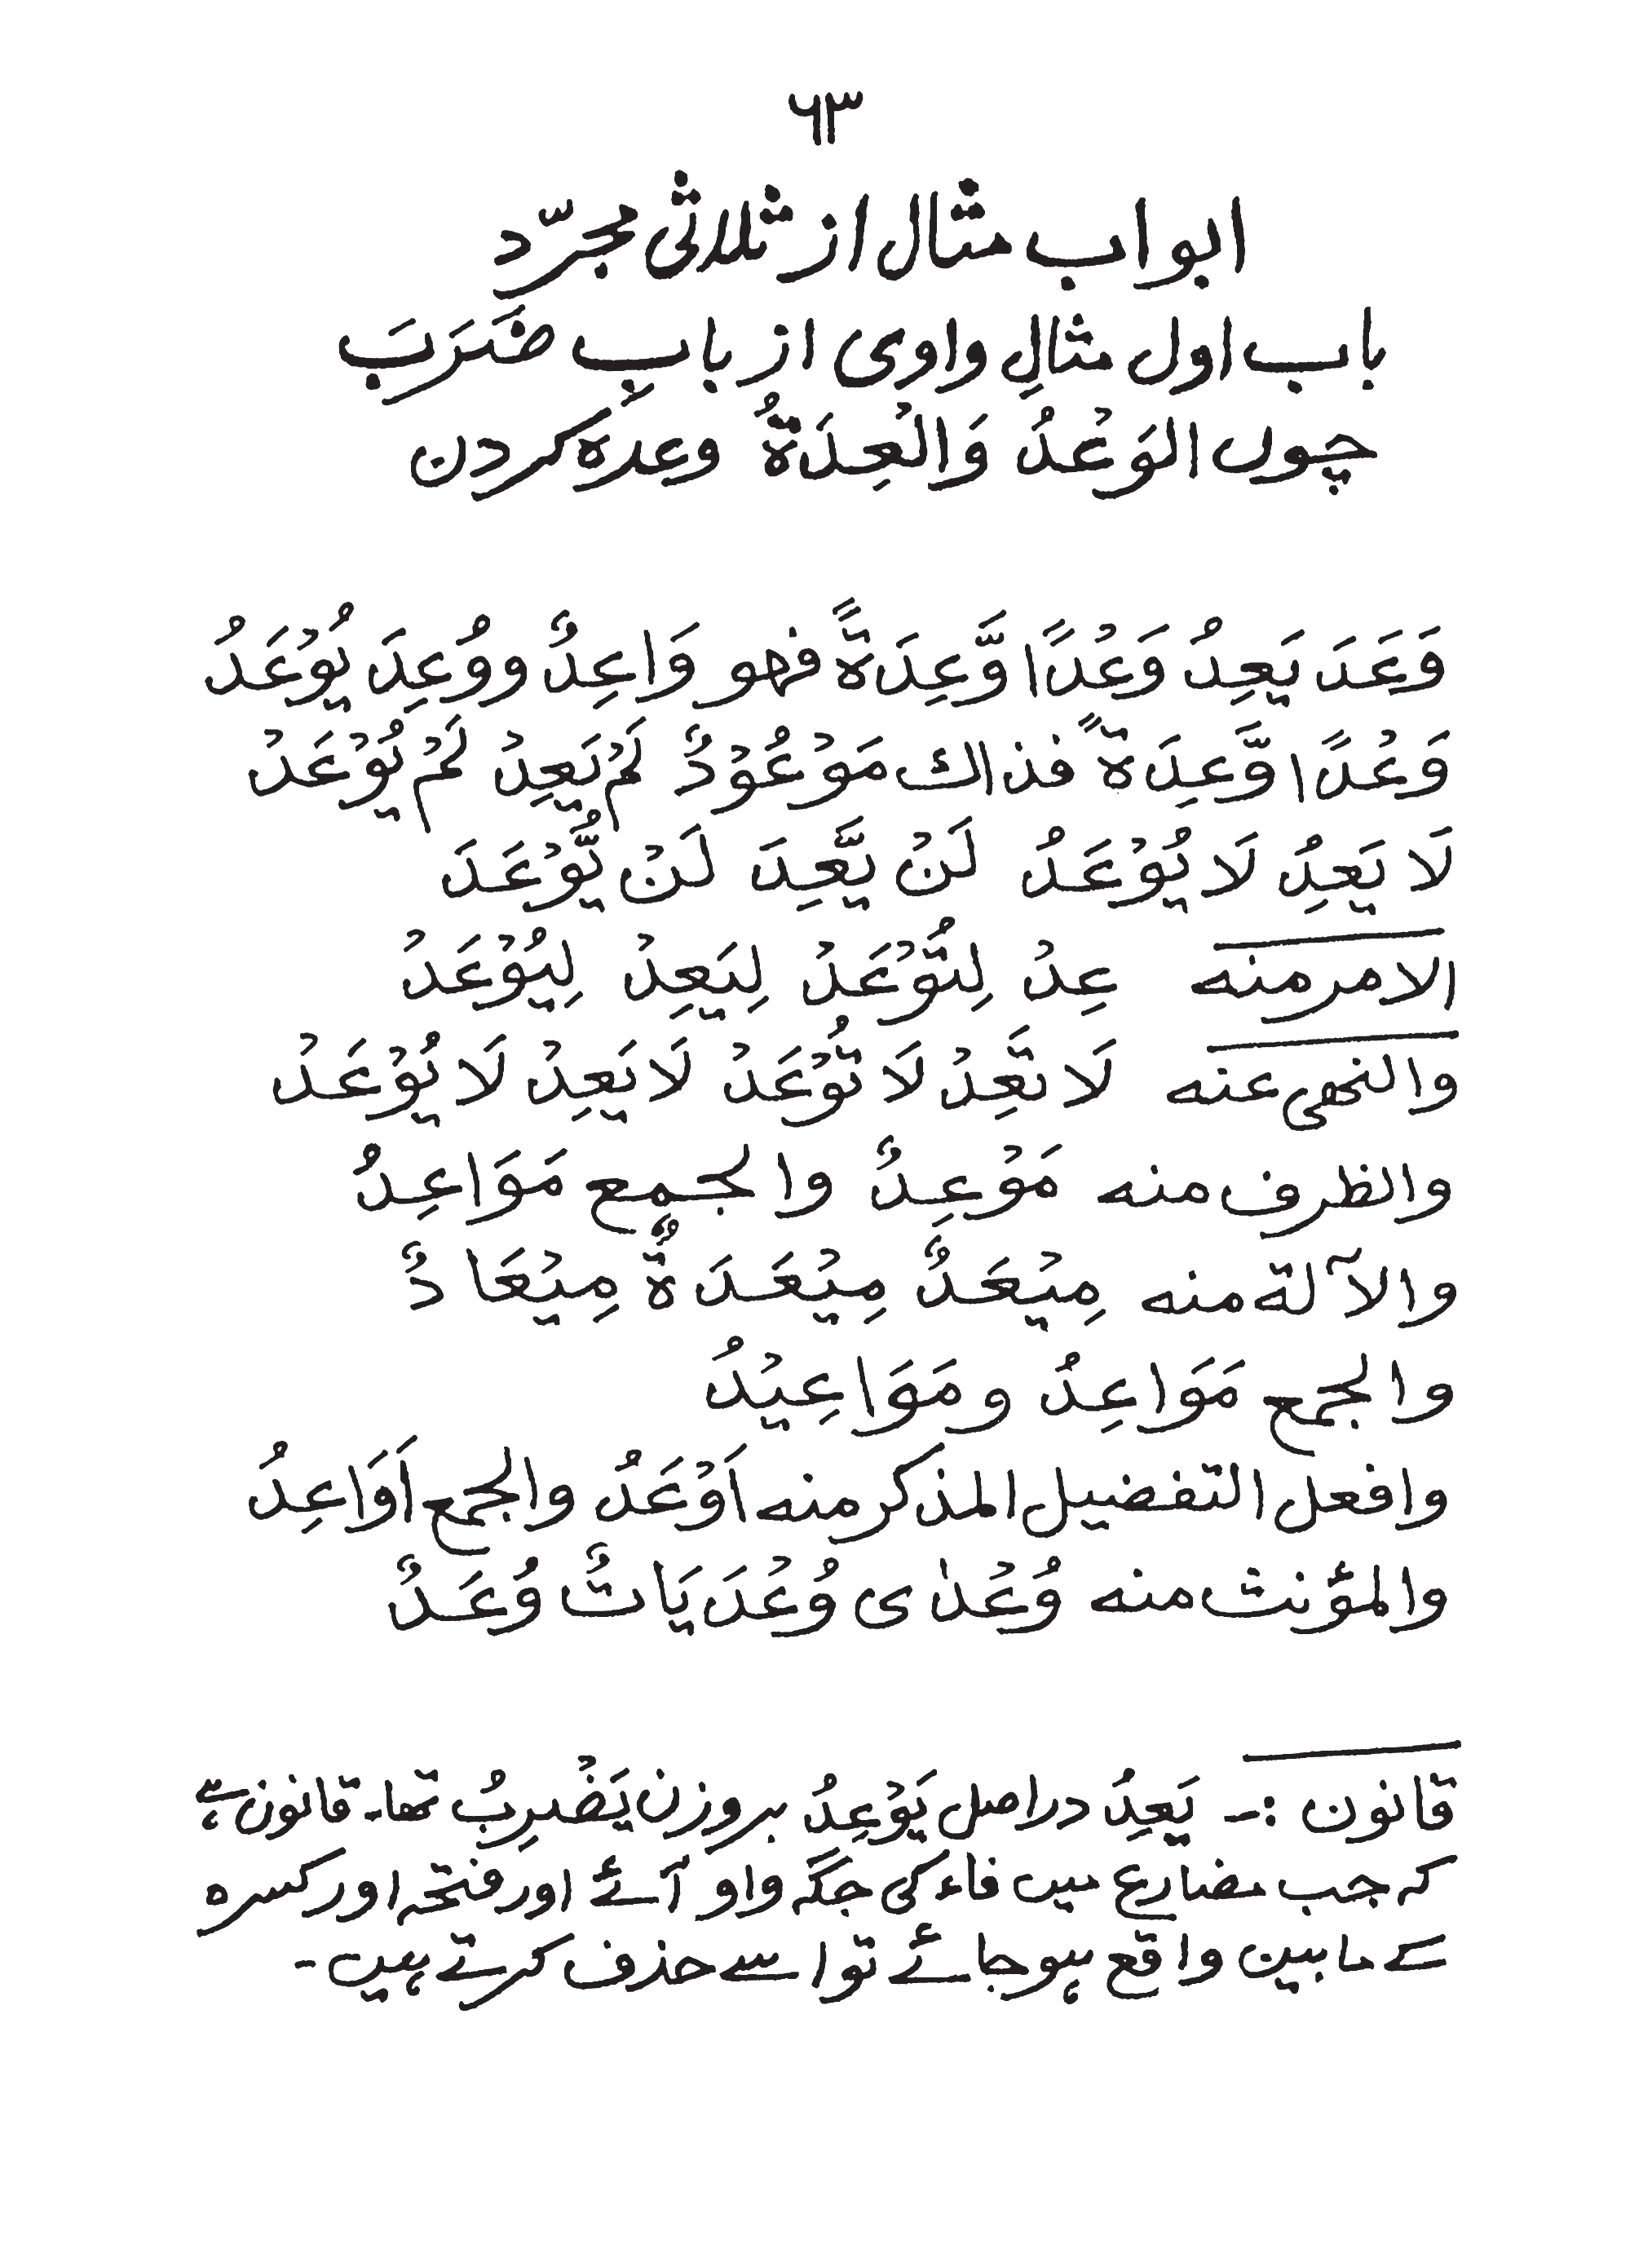 ٦٣
ابواب مثال از ثلاثی مجرّد
باب اول مثالِ واوی از بابِ ضَرَبَ
چوں الوَعْدُ وَالْعِدَةُ وعدہ کردن
وَعَدَ يَعِدُ وَعْدًا وَّعِدَةً فهو وَاعِدٌ ووُعِدَ يُوْعَدُ
وَعْدًا وَّعِدَةً فذاك مَوْعُوْدٌ لَمْ يَعِدْ لَمْ يُوْعَدْ
لَا يَعِدُ لَا يُوْعَدُ لَنْ يَّعِدَ لَنْ يُّوْعَدَ
الامر منه عِدْ لِتُوْعَدْ لِيَعِدْ لِيُوْعَدْ
والنهى عنه لَا تَعِدْ لَا تُوْعَدْ لَا يَعِدْ لَا يُوْعَدْ
والظرف منه مَوْعِدٌ والجمع مَوَاعِدُ
والآلة منه مِيْعَدٌ مِيْعَدَةٌ مِيْعَادٌ
والجمع مَوَاعِدُ و مَوَاعِيْدُ
وافعل التفضيل المذكر منه اَوْعَدُ والجمع اَوَاعِدُ
والمؤنث منه وُعْدٰى وُعْدَيَاتٌ وُعَدٌ
قانون :۔ يَعِدُ دراصل يَوْعِدُ بروزن يَضْرِبُ تھا۔ قانون ہے
کہ جب مضارع میں فاء کی جگہ واو آئے اور فتحہ اور کسرہ
کے مابین واقع ہو جائے تو اسے حذف کرتے ہیں۔